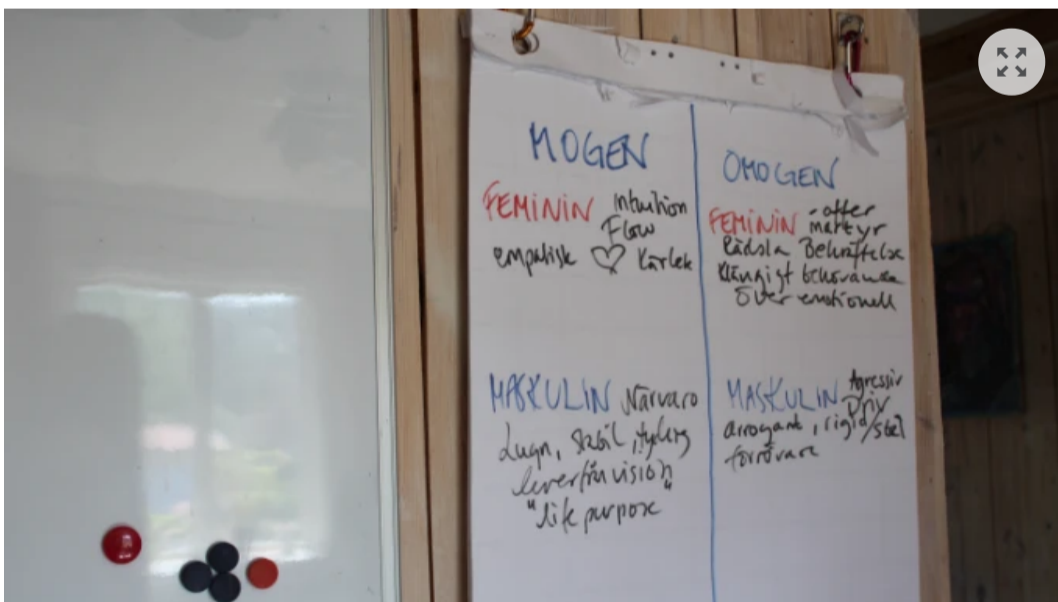 MOGEN
FEMININ Intuition
Flow
empatisk ♡ Kärlek
MASKULIN Närvaro
Lugn, stabil, tydlig
lever från vision
"life purpose"
OMOGEN
FEMININ - offer
martyr
Rädsla Bekräftelse
klängigt behövande
Över emotionell
MASKULIN Agressiv
Driv
arrogant, rigid/stel
förrövare